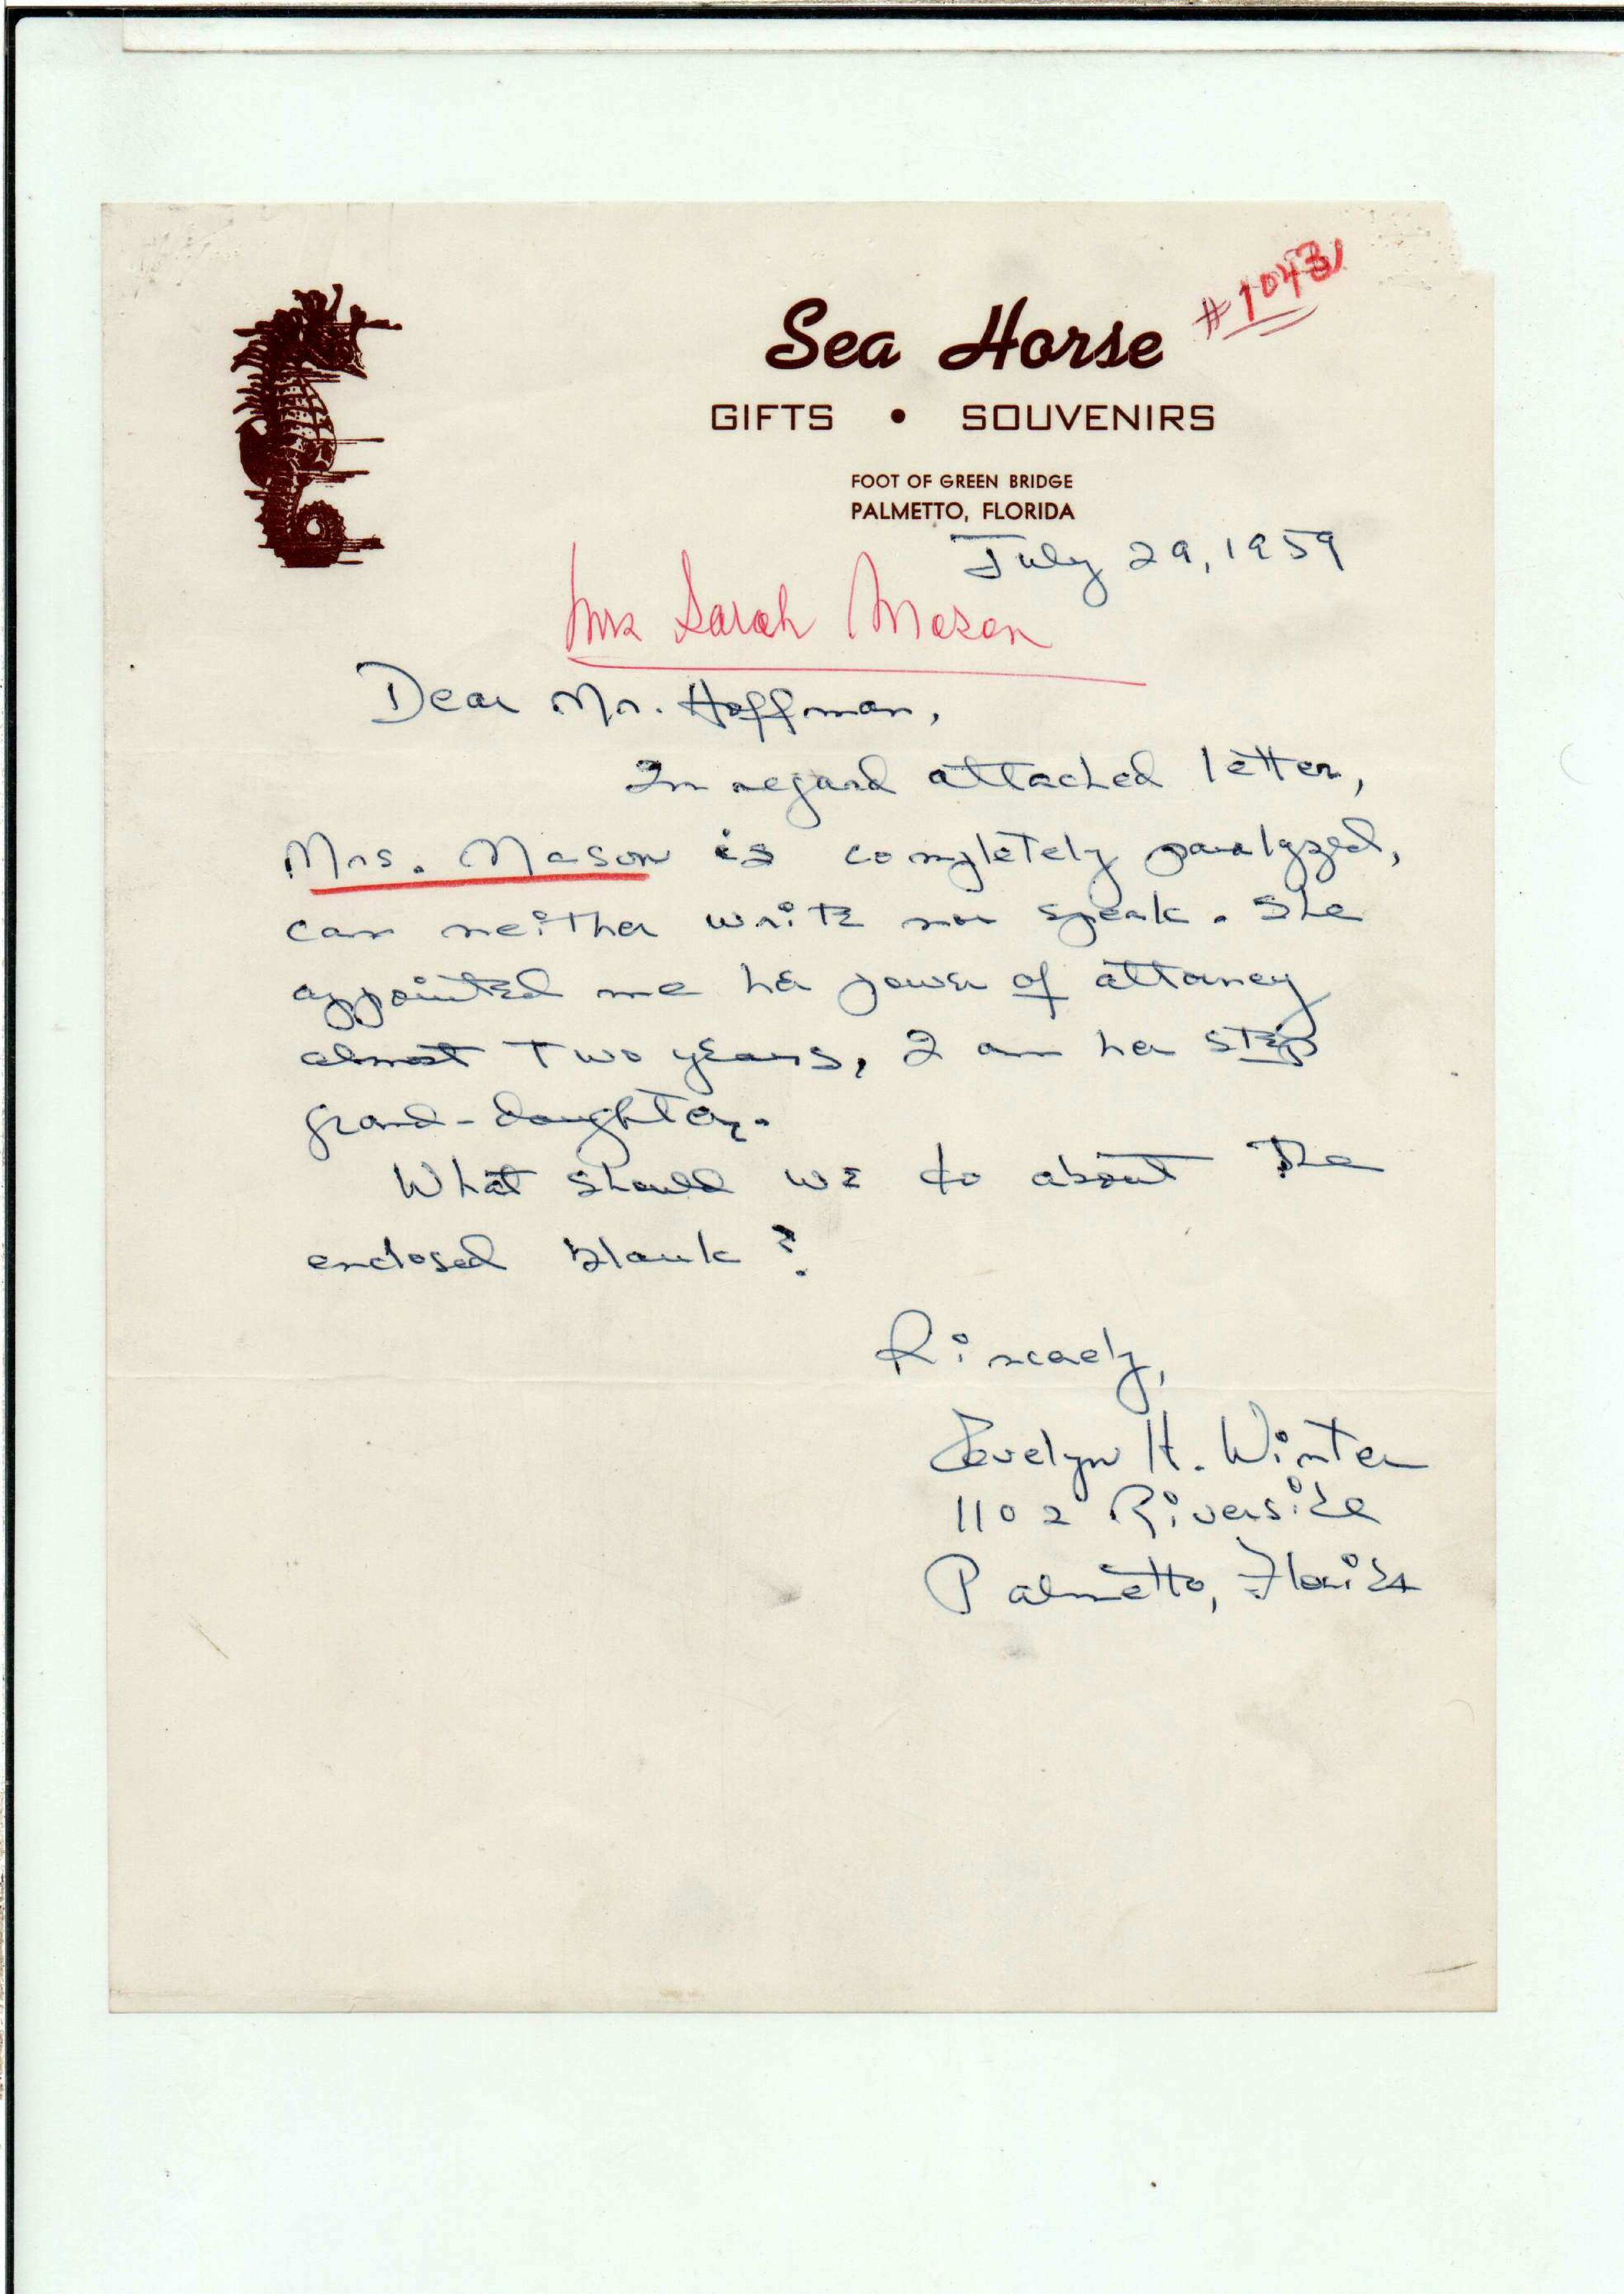 #1043
Sea Horse
GIFTS • SOUVENIRS
FOOT OF GREEN BRIDGE
PALMETTO, FLORIDA
July 29, 1959
Mrs Sarah Mason
Dear Mr. Hoffman,
In regard attached letter,
Mrs. Mason is completely paralyzed,
can neither write nor speak. She
appointed me her power of attorney
almost two years, I am her step
grand-daughter.
What should we do about the
enclosed blank?
Sincerely,
Evelyn H. Winter
1102 Riverside
Palmetto, Florida